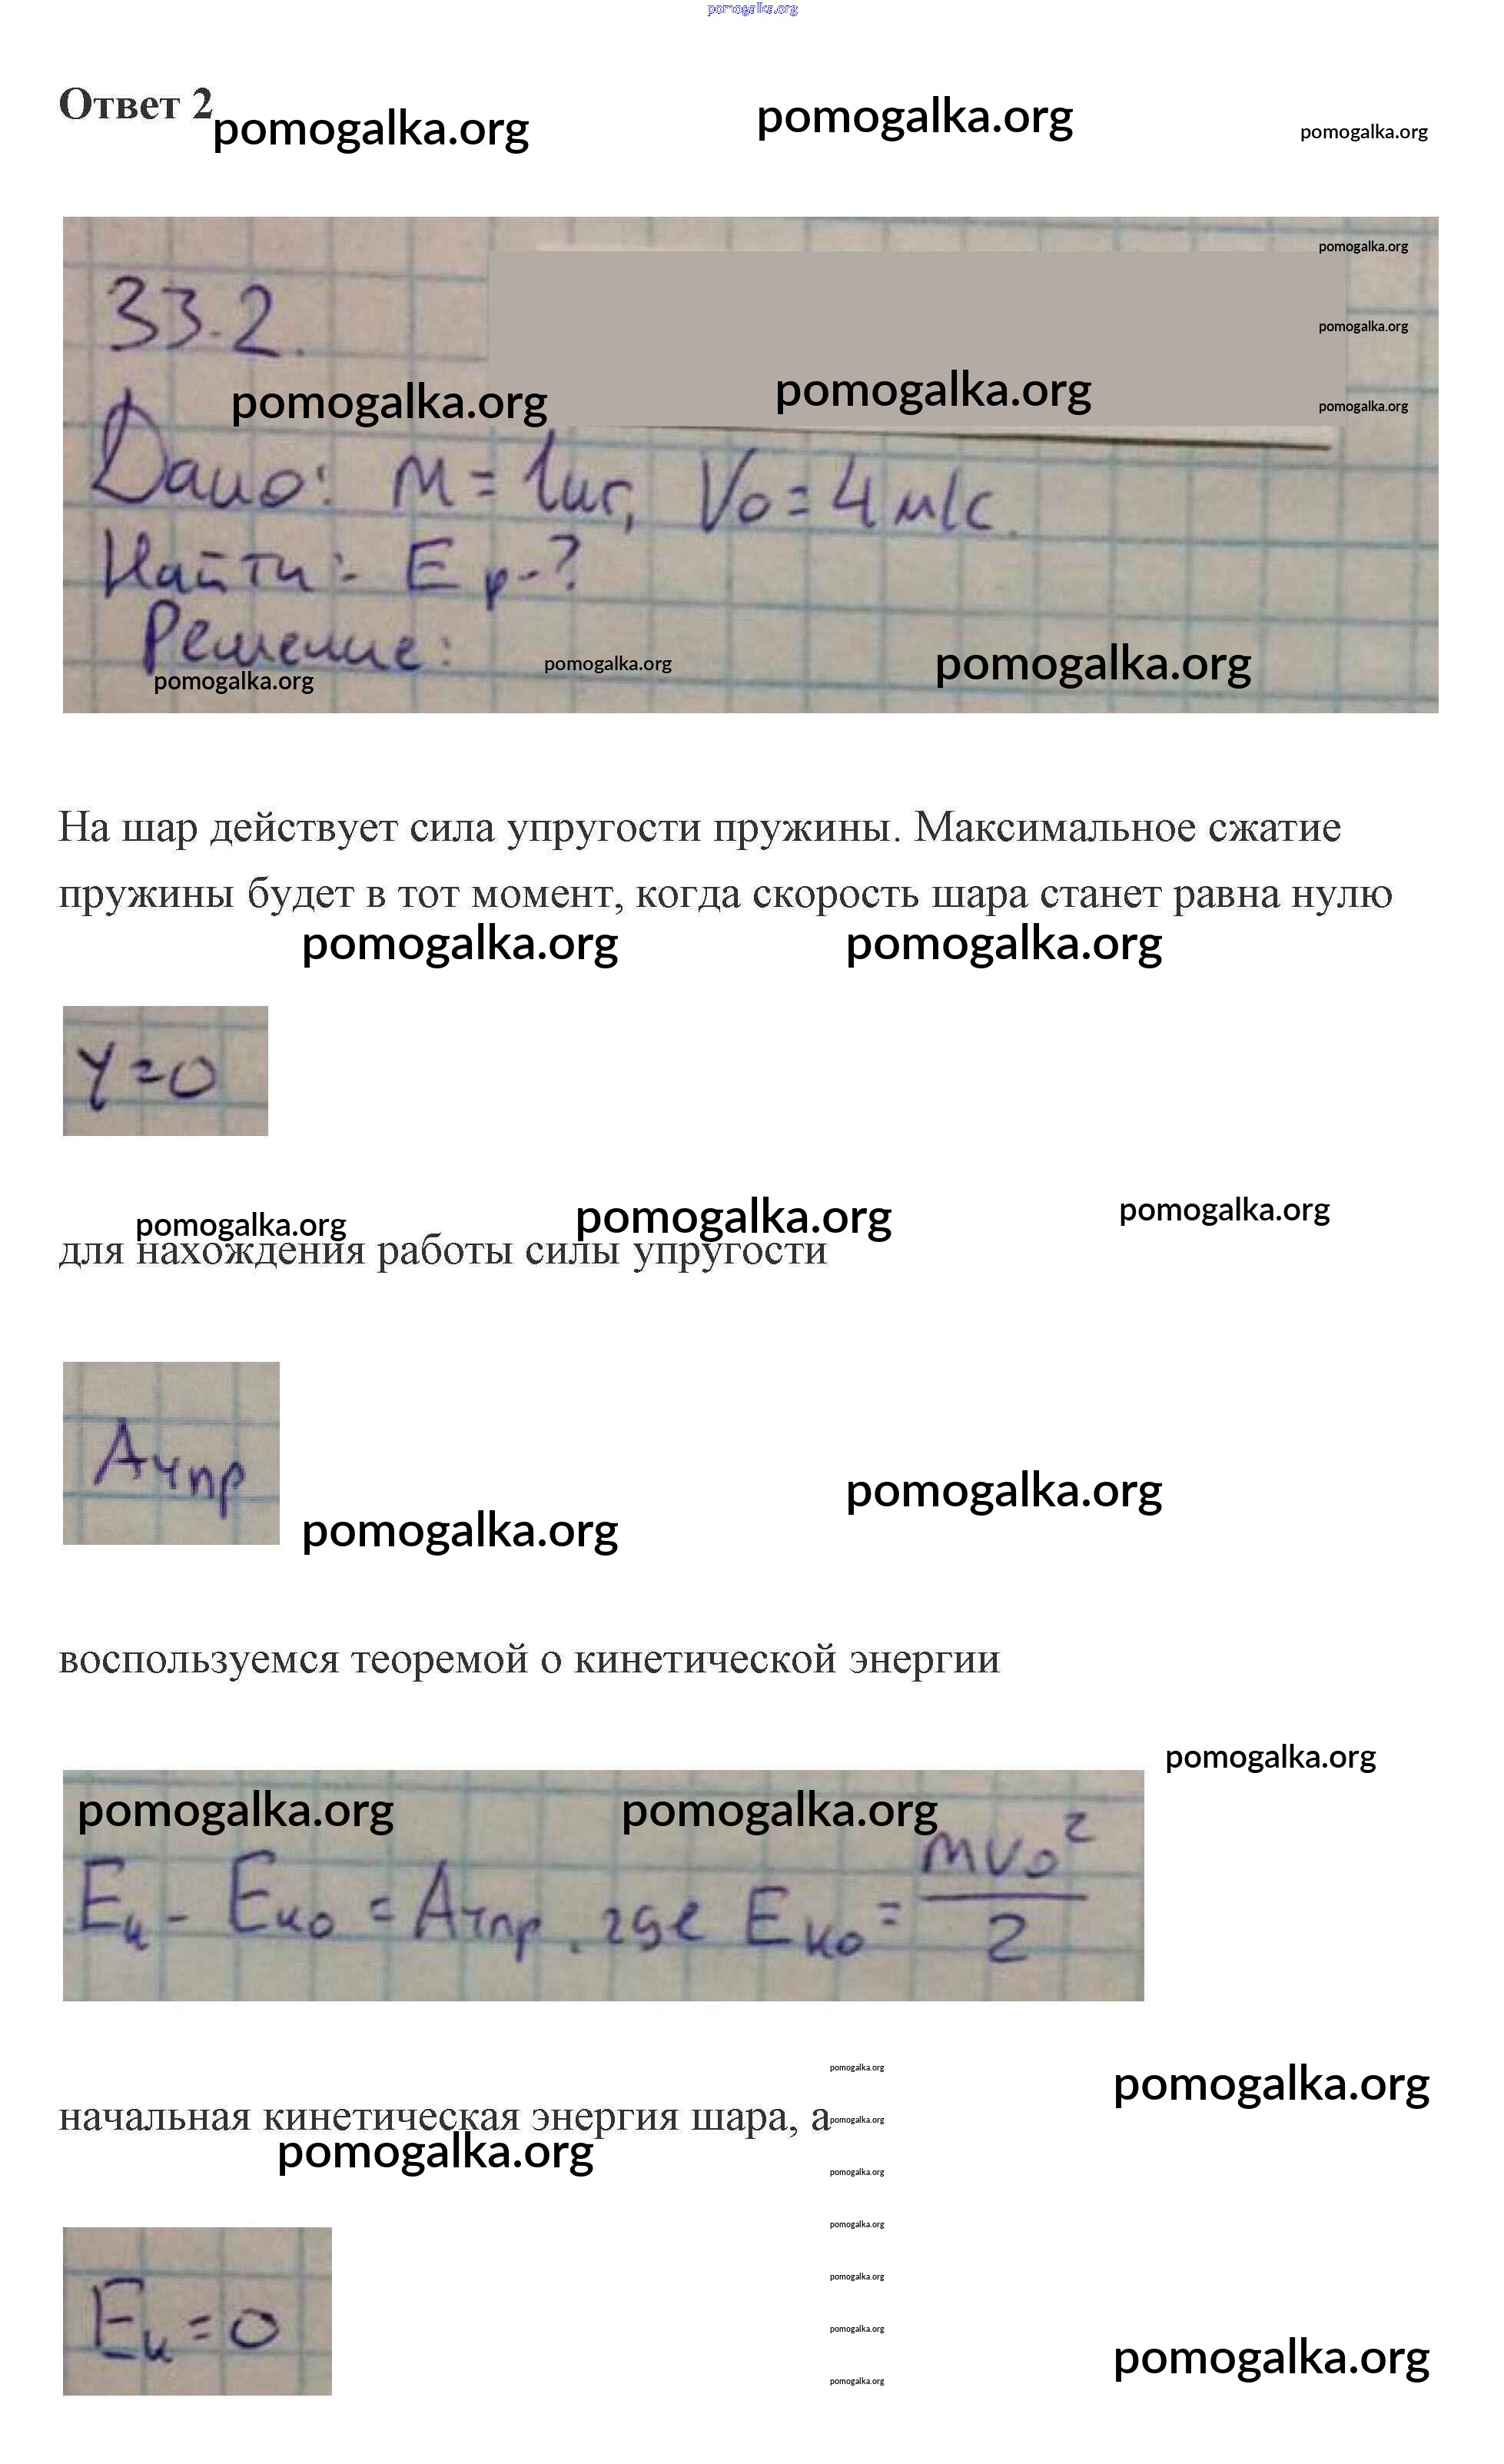 pomogalka.org
Ответ 2
pomogalka.org pomogalka.org pomogalka.org
pomogalka.org
33.2.
pomogalka.org
pomogalka.org pomogalka.org pomogalka.org
Дано: m = 1кг, V₀ = 4 м/с.
Найти: Eр-?
Решение:
pomogalka.org pomogalka.org pomogalka.org
На шар действует сила упругости пружины. Максимальное сжатие
пружины будет в тот момент, когда скорость шара станет равна нулю
pomogalka.org pomogalka.org
γ=0
pomogalka.org pomogalka.org pomogalka.org
для нахождения работы силы упругости
Aупр
pomogalka.org pomogalka.org
воспользуемся теоремой о кинетической энергии
pomogalka.org
pomogalka.org pomogalka.org
Eк - Eко = Aупр, где Eко = mv₀²/2
pomogalka.org pomogalka.org
начальная кинетическая энергия шара, а
pomogalka.org
pomogalka.org
pomogalka.org
pomogalka.org
pomogalka.org
Eк = 0
pomogalka.org
pomogalka.org
pomogalka.org